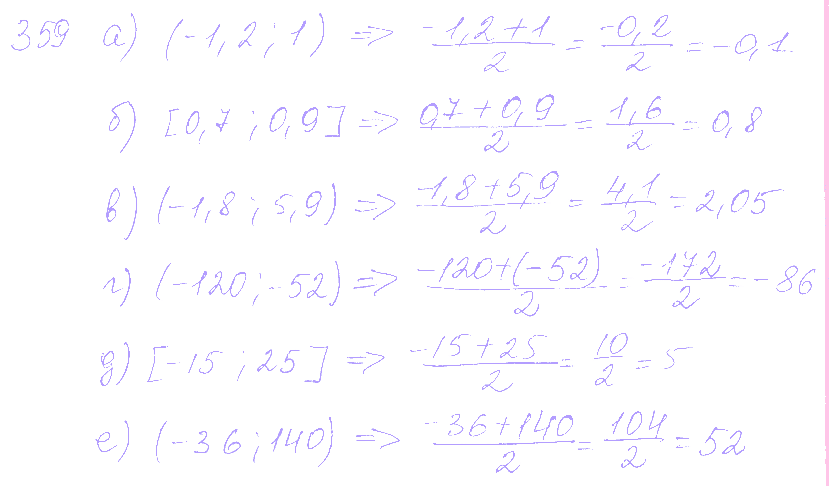 359 а) (-1,2 ; 1) => (-1,2+1)/2 = (-0,2)/2 = -0,1.
б) [0,7 ; 0,9] => (0,7+0,9)/2 = (1,6)/2 = 0,8
в) (-1,8 ; 5,9) => (-1,8+5,9)/2 = (4,1)/2 = 2,05
г) (-120 ; -52) => (-120+(-52))/2 = (-172)/2 = -86
д) [-15 ; 25] => (-15+25)/2 = 10/2 = 5
е) (-36 ; 140) => (-36+140)/2 = 104/2 = 52